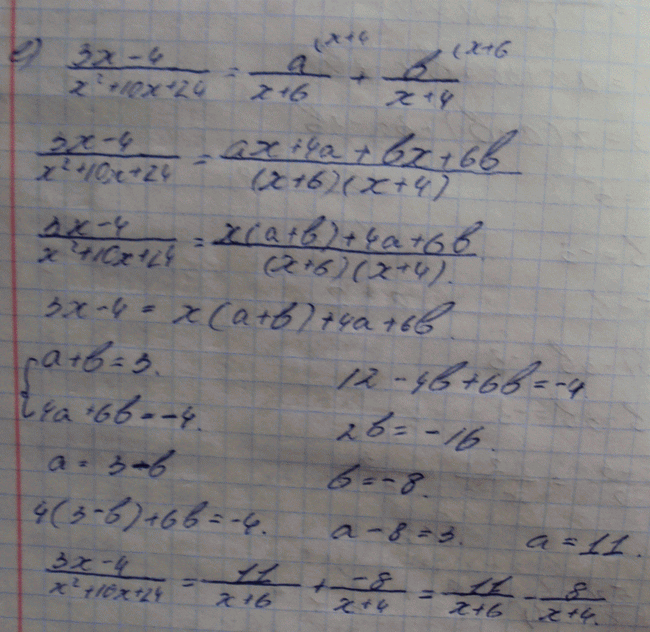 e) (3x-4)/(x²+10x+24) = a^(x+4/(x+6) + b^(x+6/(x+4)
(3x-4)/(x²+10x+24) = (ax+4a+bx+6b)/((x+6)(x+4))
(3x-4)/(x²+10x+24) = (x(a+b)+4a+6b)/((x+6)(x+4)).
3x-4 = x(a+b)+4a+6b
{a+b=3.
4a+6b=-4.
a = 3-b
4(3-b)+6b=-4.
12-4b+6b=-4
2b=-16.
b=-8.
a-8=3. a=11.
(3x-4)/(x²+10x+24) = 11/(x+6) + -8/(x+4) = 11/(x+6) - 8/(x+4).